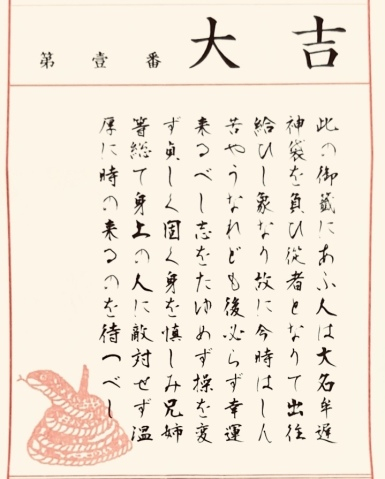 第壹番 大吉
此の御籤にあふ人は大名牟遅
神袋を負ひ従者となりて出往
給ひし象なり故に今時はしん
苦やうなれども後必らず幸運
来るべし志をたゆめず操を変
ず貞しく固く身を慎しみ兄姉
等総て身上の人に敵対せず温
厚に時の来るのを待つべし